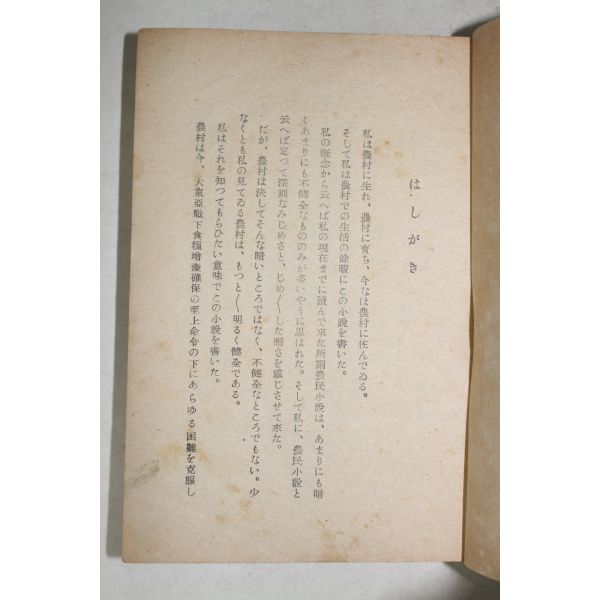 はしがき
私は農村に生れ、農村に育ち、今なほ農村に住んでゐる。
そして私は農村での生活の餘暇にこの小說を書いた。
私の概念から云へば私の現在までに讀んで來た所謂農民小說は、あまりにも暗
くあまりにも不健全なもののみが多いやうに思はれた。そして私に、農民小說と
云へば定つて深刻なみじめさと、じめ〳〵した暗さを感じさせて來た。
だが、農村は決してそんな暗いところではなく、不健全なところでもない。少
なくとも私の見てゐる農村は、もつと〳〵明るく健全である。
私はそれを知つてもらひたい意味でこの小說を書いた。
農村は今、大東亞戰下食糧增產確保の至上命令の下にあらゆる困難を克服し